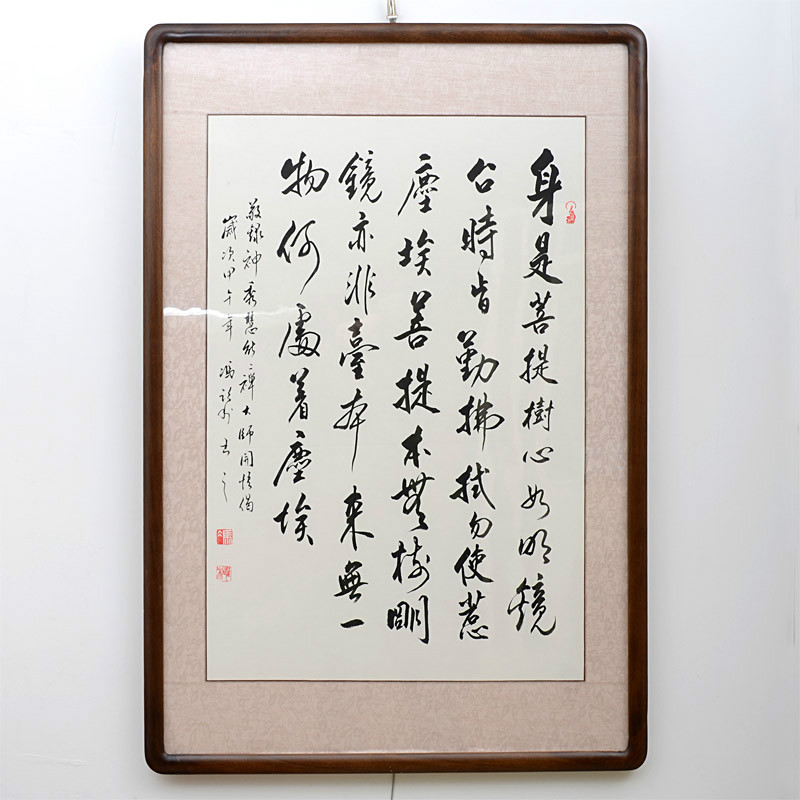 身是菩提樹心如明鏡
台時旹勤拂拭勿使惹
塵埃菩提本無樹明
鏡亦非臺本來無一
物何處着塵埃
敬録神秀慧能二禪大師開悟偈
歲次甲午年馮